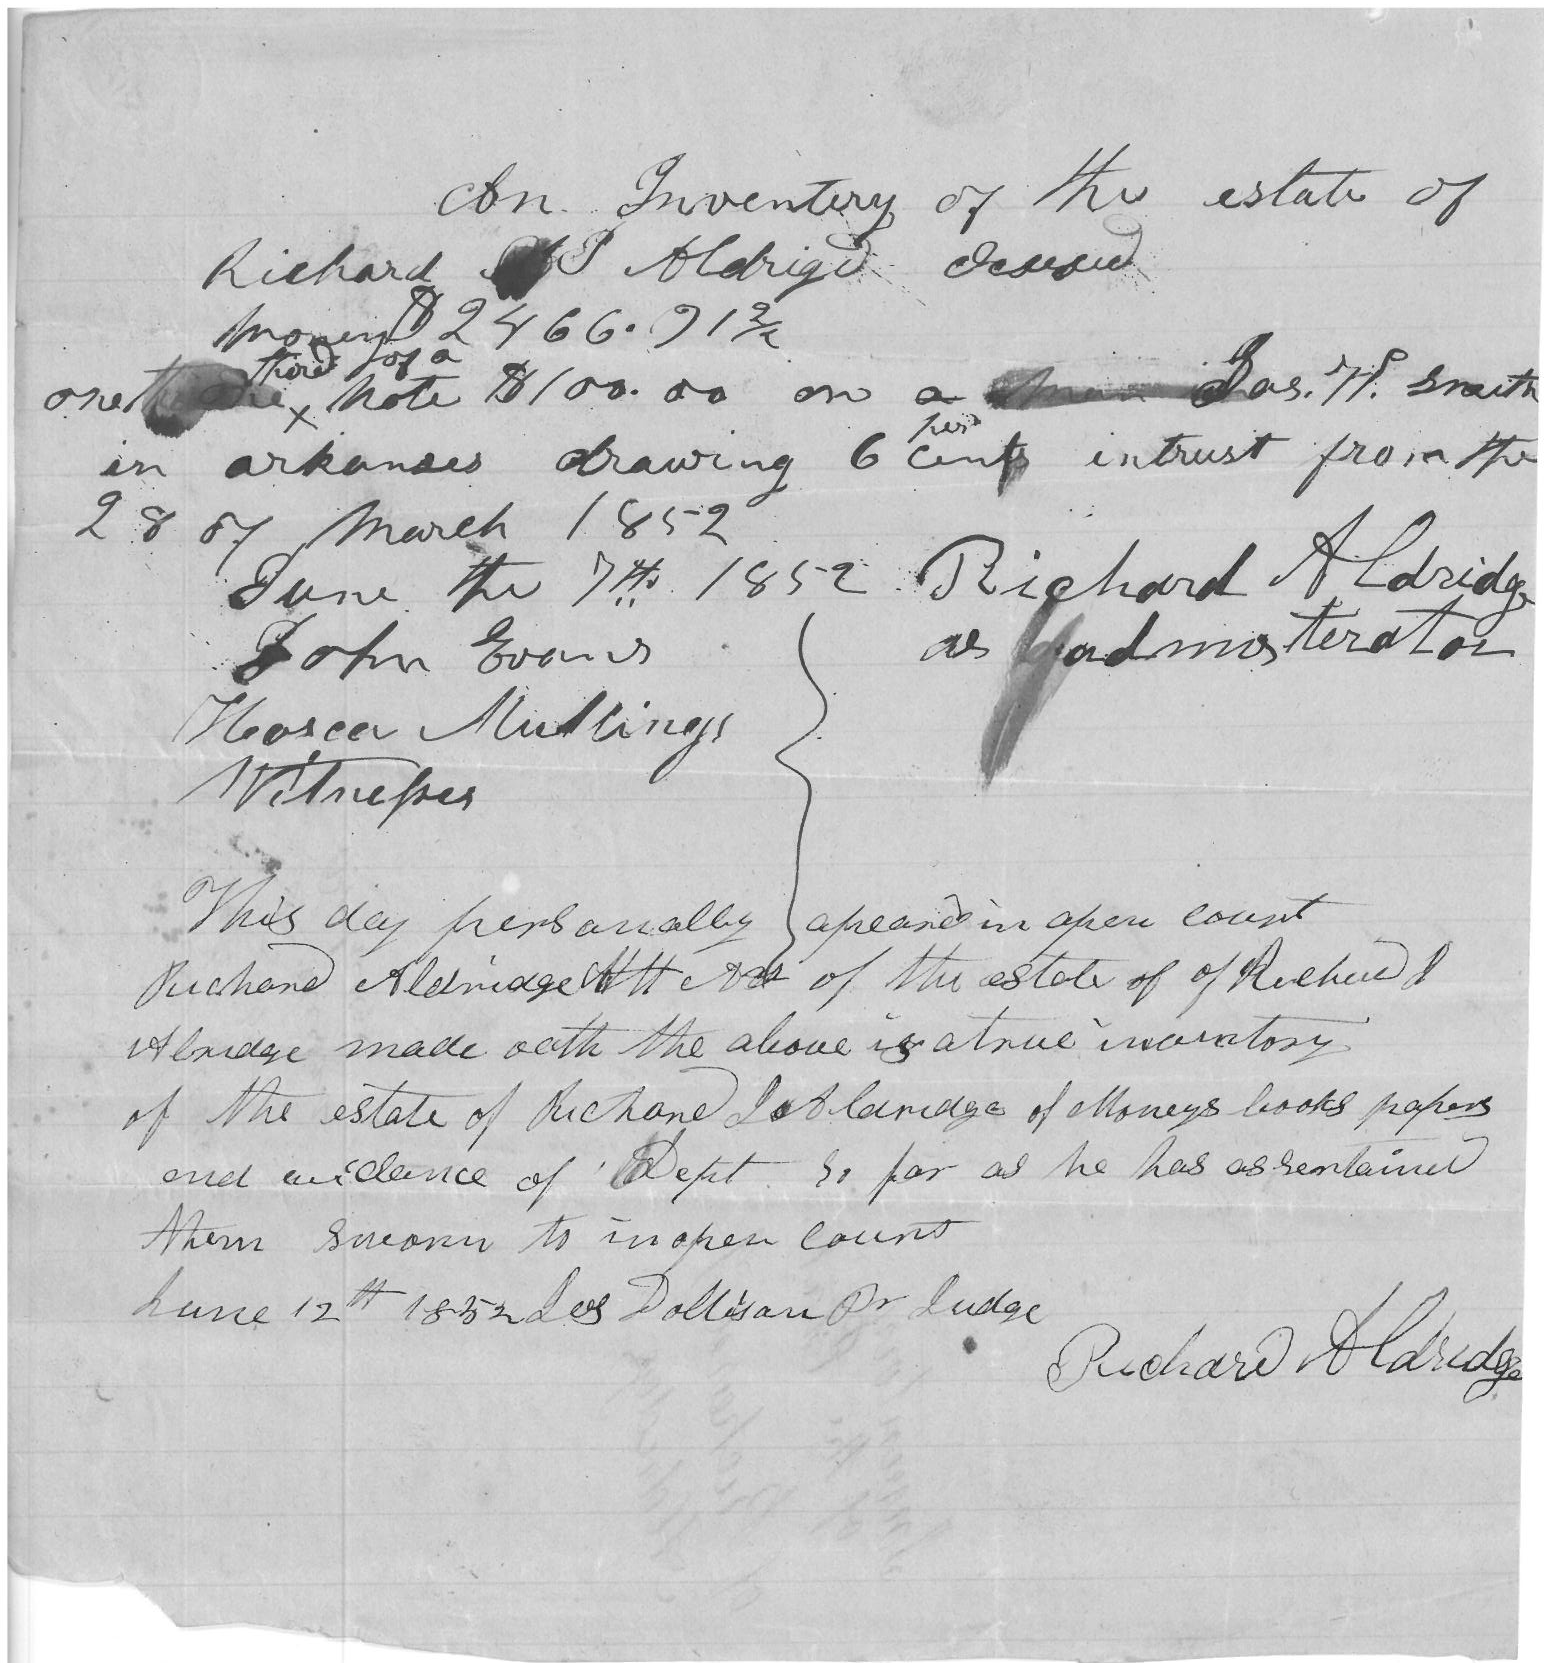 An Inventery of the estate of
Richard J Aldrige desesed
Money $2466.71 2/2
third of a
one note $100.00 on a Jas. H. Smith
per
in arkanses drawing 6 cents intrust from the
28 of March 1852
June the 7th 1852 Richard Aldridge
as admisterator
John Evans
Hosea Mullings
Witnesses
This day personally apeared in open court
Richard Aldridge of the estate of of Richard J
Alridge made oath the above is a true inventory
of the estate of Richard J Aldridge of Moneys books papers
and evidance of Dept so far as he has assertained
them sworn to in open court
June 12th 1852 Jas Dollison Pr Judge
Richard Aldridge